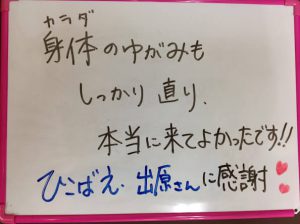 カラダ
身体のゆがみも
しっかり直り、
本当に来てよかったです!!
ひこばえ、出原さんに感謝